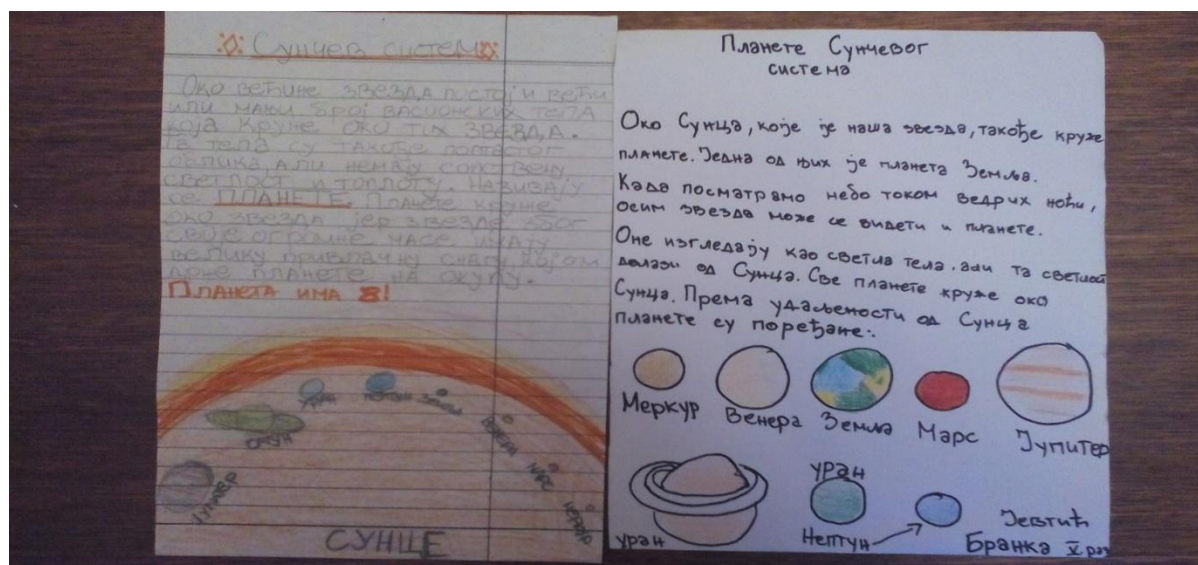 Сунчев систем
Око већине звезда постоји већи
или мањи број васионских тела
која круже око тих звезда.
Та тела су такође лоптастог
облика, али немају сопствену
светлост и топлоту. Називају
се ПЛАНЕТЕ. Планете круже
око звезда јер звезде због
своје огромне масе имају
велику привлачну снагу којом
држе планете на окупу.
ПЛАНЕТА ИМА 8!
ЈУПИТЕР
САТУРН
УРАН
НЕПТУН
ЗЕМЉА
ВЕНЕРА
МАРС
МЕРКУР
СУНЦЕ
Планете Сунчевог
система
Око Сунца, које је наша звезда, такође круже
планете. Једна од њих је планета Земља.
Када посматрамо небо током ведрих ноћи,
осим звезда може се видети и планете.
Оне изгледају као светла тела. али та светлост
долази од Сунца. Све планете круже око
Сунца. Према удаљености од Сунца
планете су поређане:
Меркур
Венера
Земља
Марс
Јупитер
уран
уран
Нептун
Јевтић
Бранка V раз